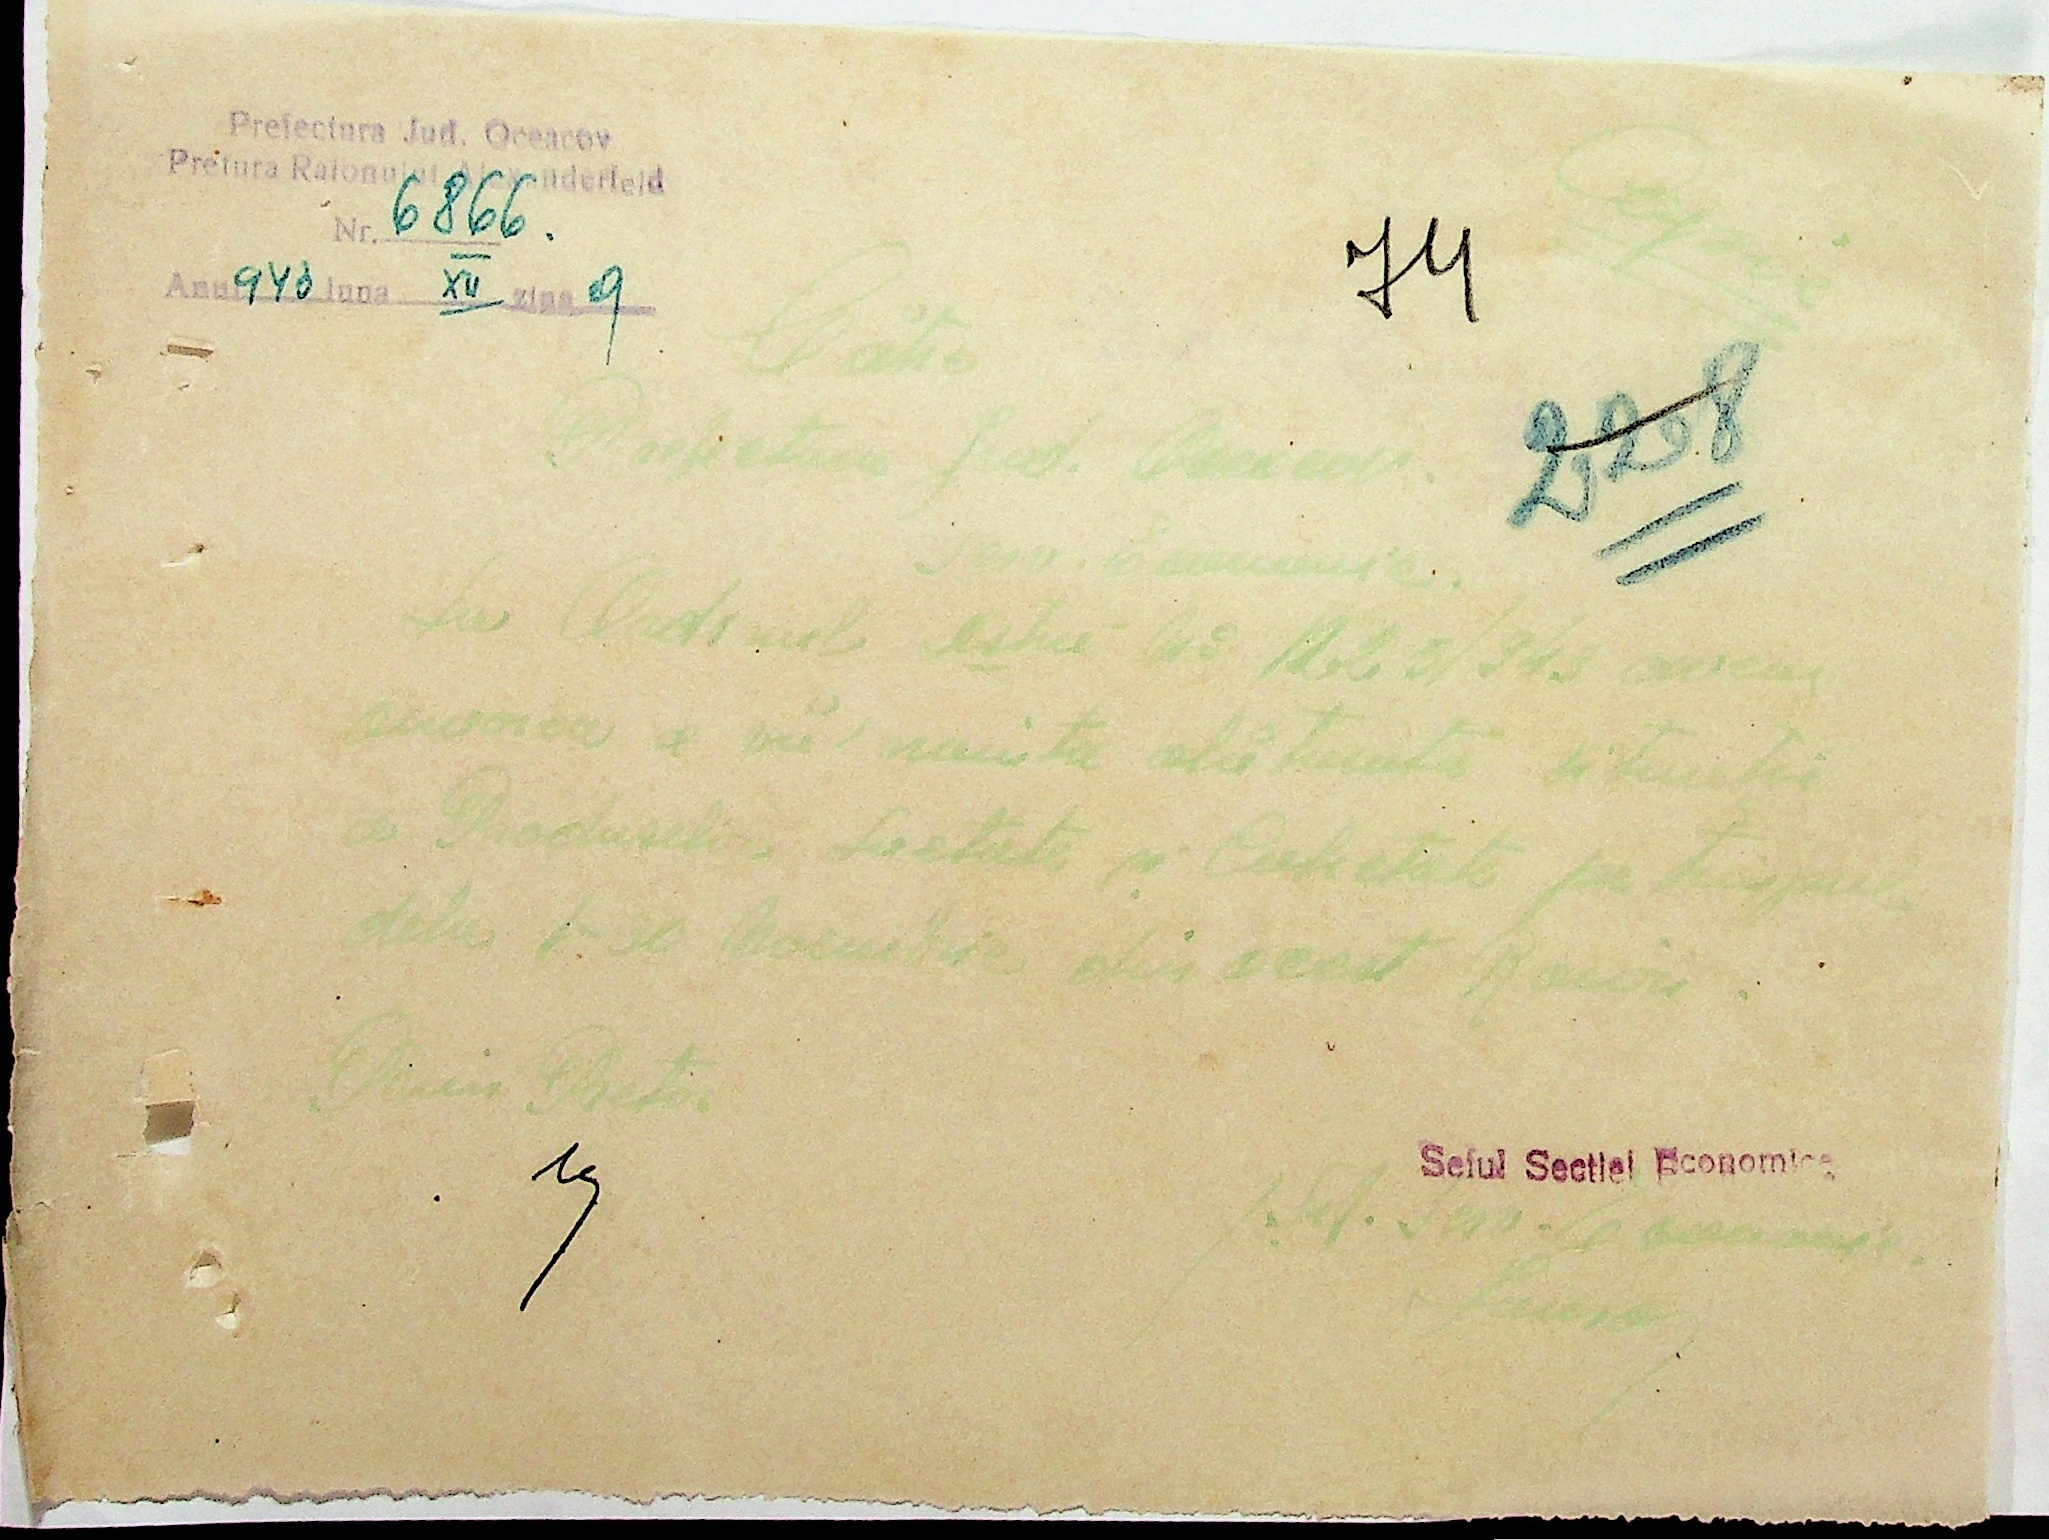 Prefectura Jud. Oceacov
Pretura Raionului Alexanderfeld
Nr. 6866.
Anul 943 luna XII ziua 9
74
228
Către
Prefectura Jud. Oceacov.
Serv. Economic.
La Ordinul Nº avem
onoarea a vă înainta alăturata situația
a Produselor Lactate și pe timpul
dela 1-30 Noembrie din acest Raion.
Prim Pretor
Seful Sectiei Economice
Serv. Economic.